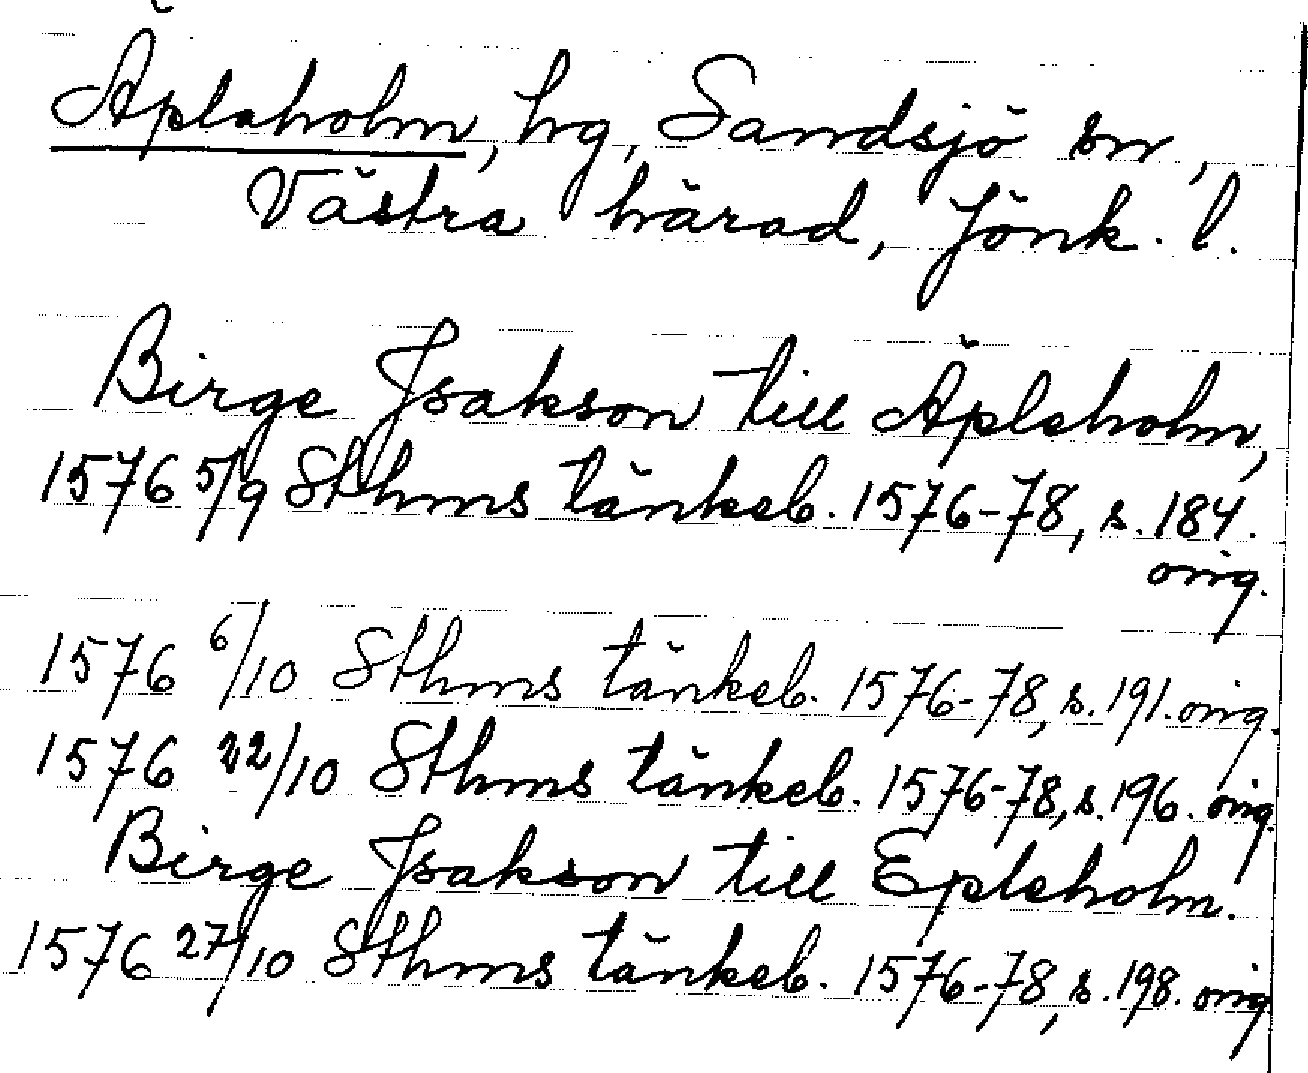 Äpleholm, hrg, Sandsjö sn,
Västra härad, Jönk. l.
Birge Jsakson till Äpleholm,
1576 5/9 Sthms tänkeb. 1576-78, s. 184.
orig.
1576 6/10 Sthms tänkeb. 1576-78, s. 191. orig.
1576 22/10 Sthms tänkeb. 1576-78, s. 196. orig.
Birge Jsakson till Epleholm.
1576 27/10 Sthms tänkeb. 1576-78, s. 198. orig